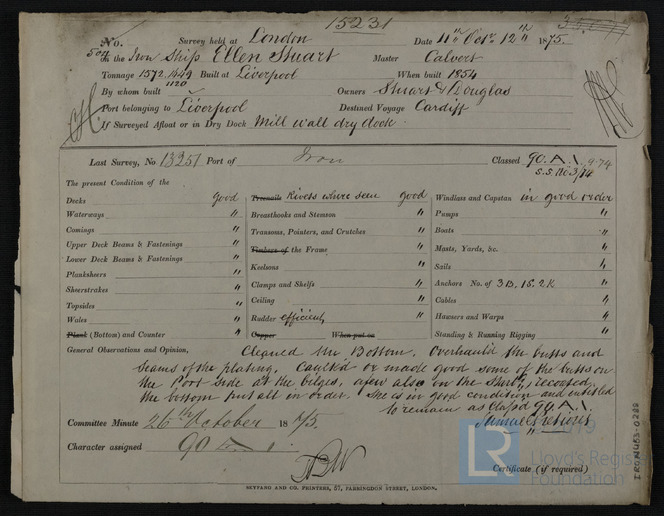 15231
No. Survey held at London Date 11th Octr. 12th 1875.
504 On the Iron Ship Ellen Stuart Master Calvert
Tonnage 1572. 1449 Built at Liverpool When built 1854
1120
By whom built Owners Stuart & Douglas
Port belonging to Liverpool Destined Voyage Cardiff
If Surveyed Afloat or in Dry Dock Mill wall dry dock.
Last Survey, No. 13251 Port of Iron Classed 90.A.1. 9.74
S.S. No 3/74
The present Condition of the
Decks good Treenails Rivets where seen good Windlass and Capstan in good order
Waterways " Breasthooks and Stemson " Pumps "
Comings " Transoms, Pointers, and Crutches " Boats "
Upper Deck Beams & Fastenings " Timbers of the Frame " Masts, Yards, &c. "
Lower Deck Beams & Fastenings " Keelsons " Sails "
Planksheers " Clamps and Shelfs " Anchors No. of 3B. 1S. 2K "
Sheerstrakes " Ceiling " Cables "
Topsides " Rudder efficient, " Hawsers and Warps "
Wales " Copper When put on Standing & Running Rigging "
Plank (Bottom) and Counter "
General Observations and Opinion, Cleaned the Bottom. Overhauld the butts and
seams of the plating. Caulked or made good some of the butts on
the Port side at the bilges, a few also on the Starbd, recoated
the bottom put all in order. She is in good condition and entitled
to remain as Classd 90.A.1.
Committee Minute 26th October 1875
Character assigned 90 A 1
Certificate (if required)
SEYFANG AND CO. PRINTERS, 57, FARRINGDON STREET, LONDON.
LR
Lloyd's Register
Foundation
IRON453-0288